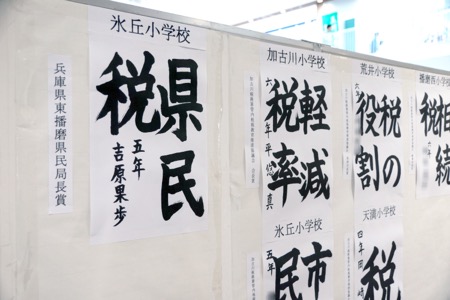 氷丘小学校
県民
税
五年
吉原果歩
兵庫県東播磨県民局長賞
加古川小学校
軽減
税率
六年
平
真
荒井小学校
税の
役割
六年
播磨西小学校
相続
税
氷丘小学校
市
民
五年
天満小学校
税
四年
岡